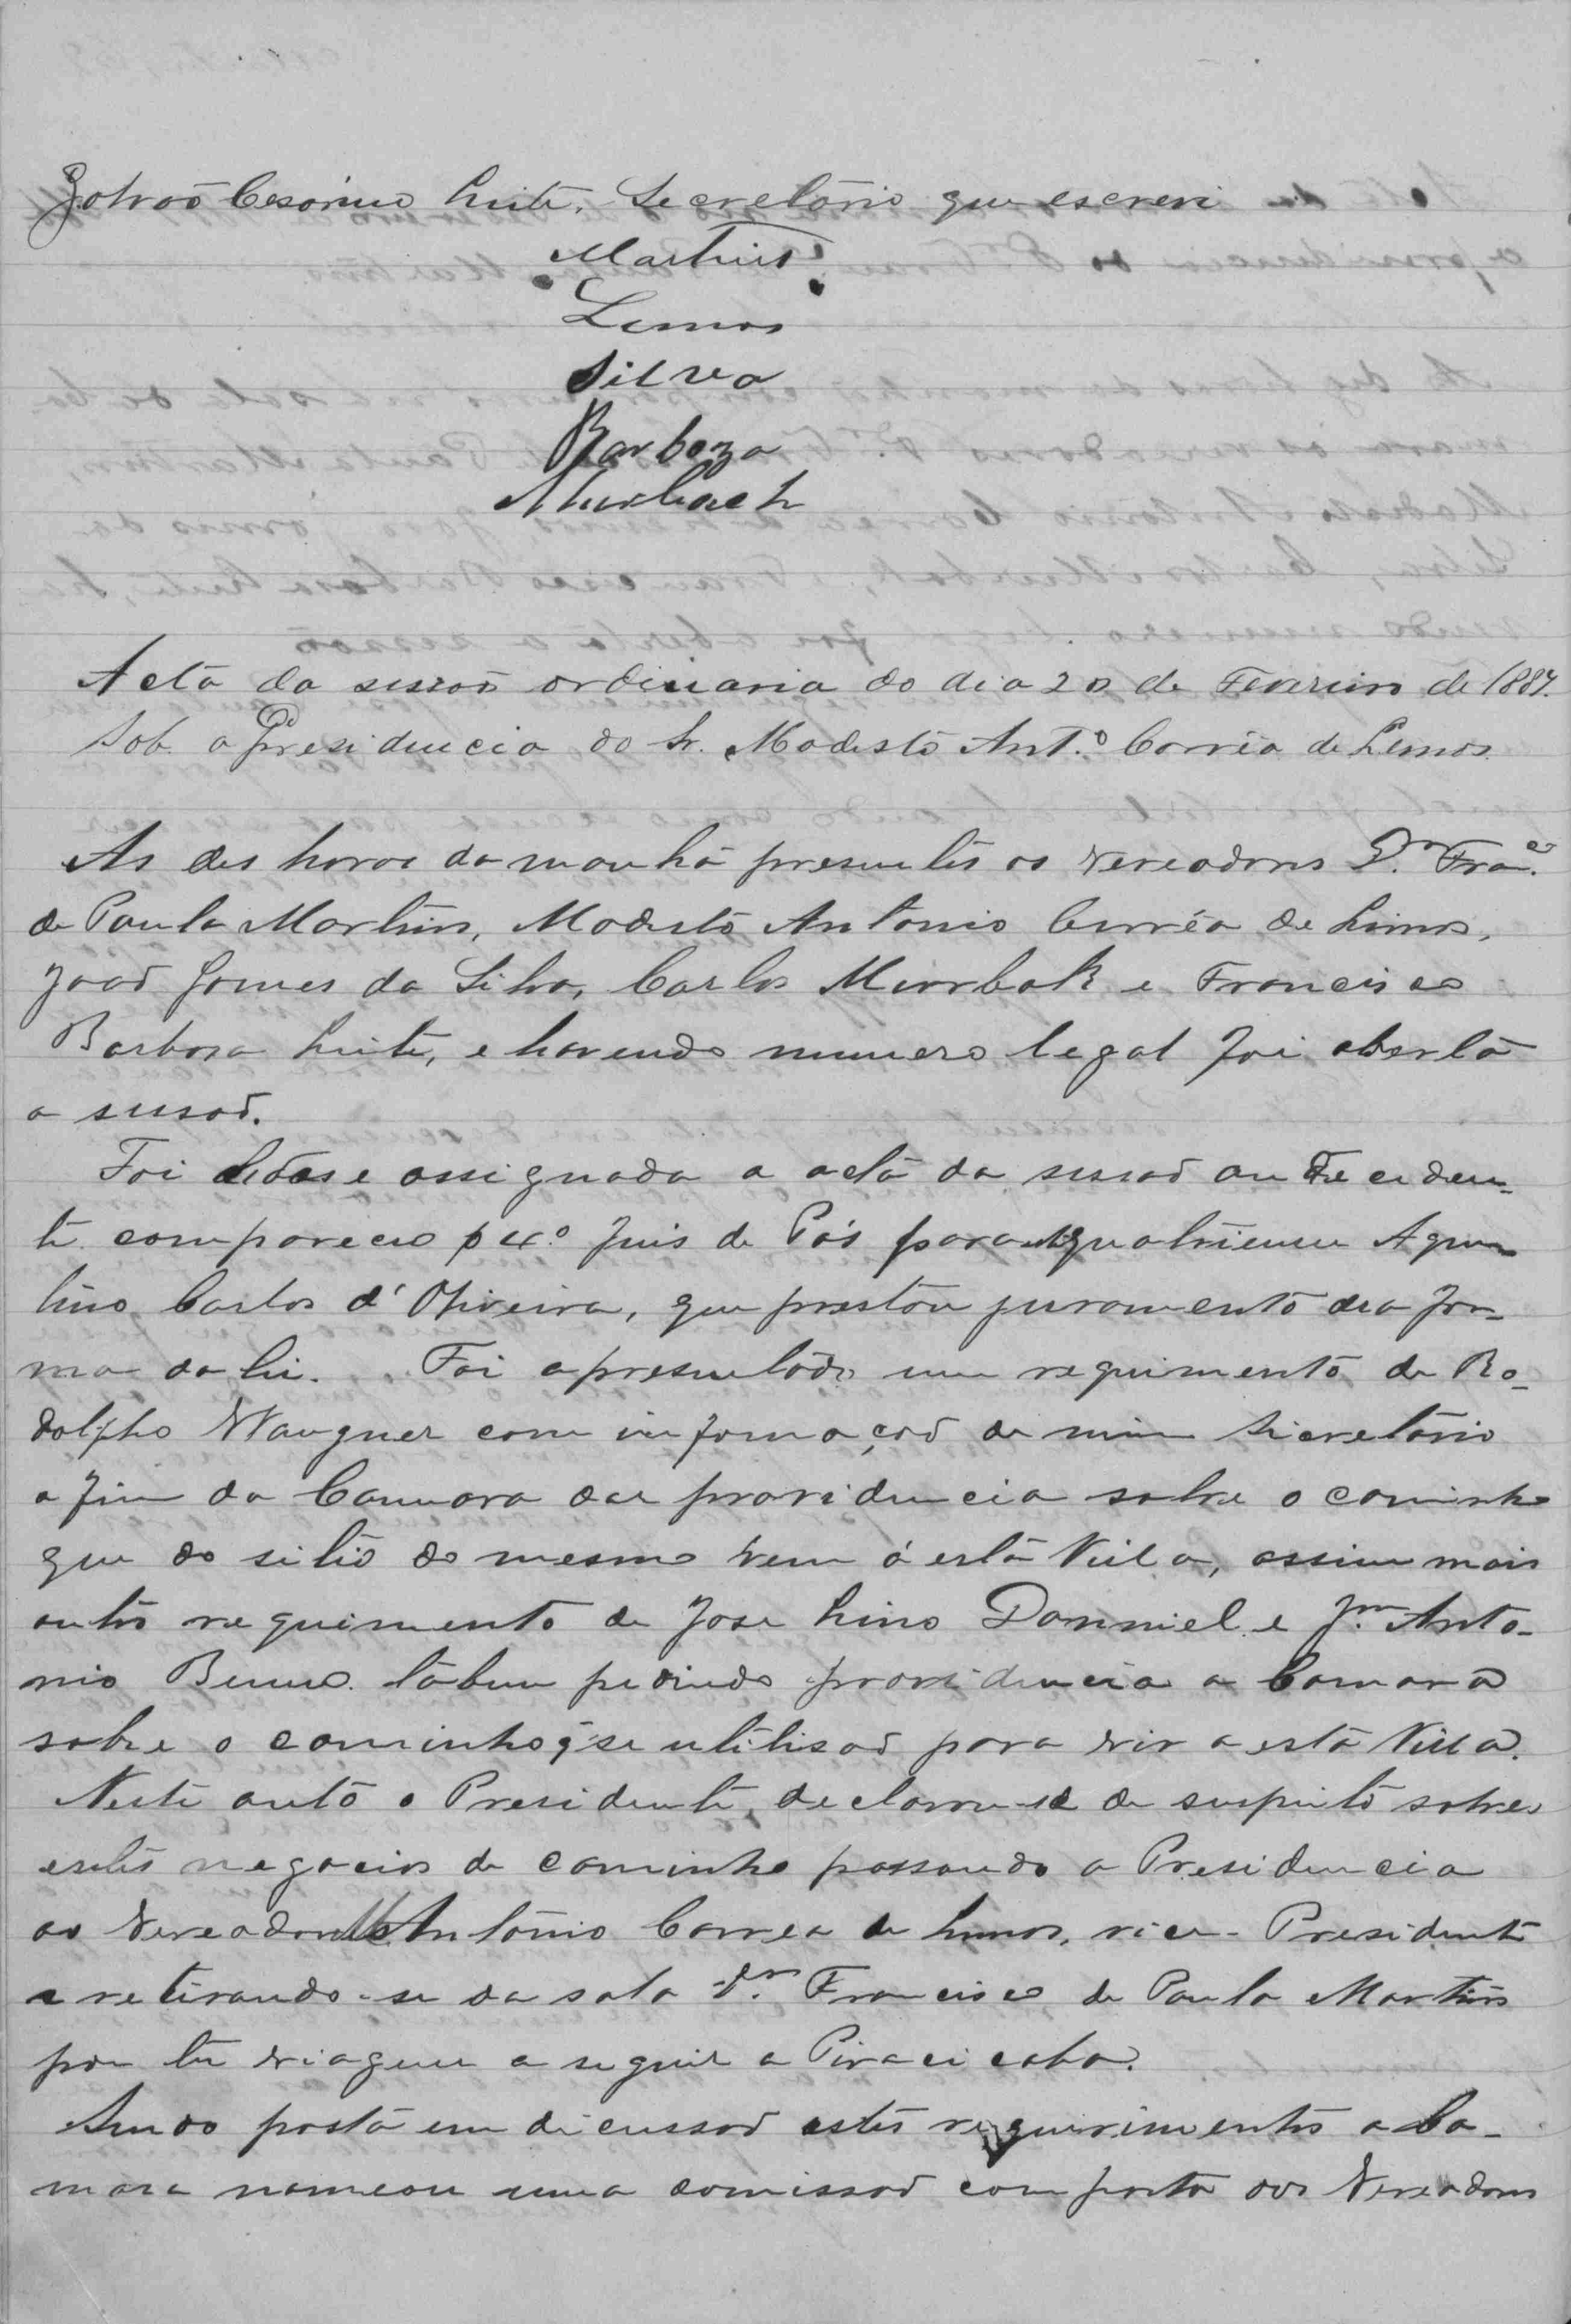 Galvaõ Cesarino Leite, Secretario que escrevi
Martins
Lemos
Silva
Barboza
Murbach
Acta da sessaõ ordinaria do dia 20 de Fevereiro de 1887.
Sob a Presidencia do Sr. Modesto Ant.o Corrêa de Lemos.
As des horas da manhã presentes os Vereadores Dr. Fran.co
de Paula Martins, Modesto Antonio Corrêa de Lemos,
Joaõ Gomes da Silva, Carlos Murrbak e Francisco
Barbosa Leite, e havendo numero legal foi aberta
a sessaõ.
Foi lida e assignada a acta da sessaõ anteceden-
te compareceo o 4.o Juis de Pás para quatrienu
lino Carlos d'Oliveira, que prestou juramento na for-
ma da lei. Foi apresentado um requimento de Ro-
dolpho Waugner com informaçaõ de mim Sicretario
a fim da Camara dar providencia sobre o caminho
que do sitio do mesmo vem á esta Villa, assim mais
outro requimento de Jose Lino Danniel e Jm. Anto-
nio Bueno tabem pedindo providencia a Camara
sobre o caminho q' se utilisaõ para vir a esta Villa.
Neste auto o Presidente declarou-se de suspeito sobre
estes negocios de caminho passando a Presidencia
ao Vereador Antonio Correa de Lemos, vice-Presidente
e retirando-se da sala Dr. Francisco de Paula Martins
por ter viagem a seguir a Piracicaba.
Sendo posto em dicussaõ estes requerimentos a Ca-
mara nomeou uma comissaõ composta dos Vereadores